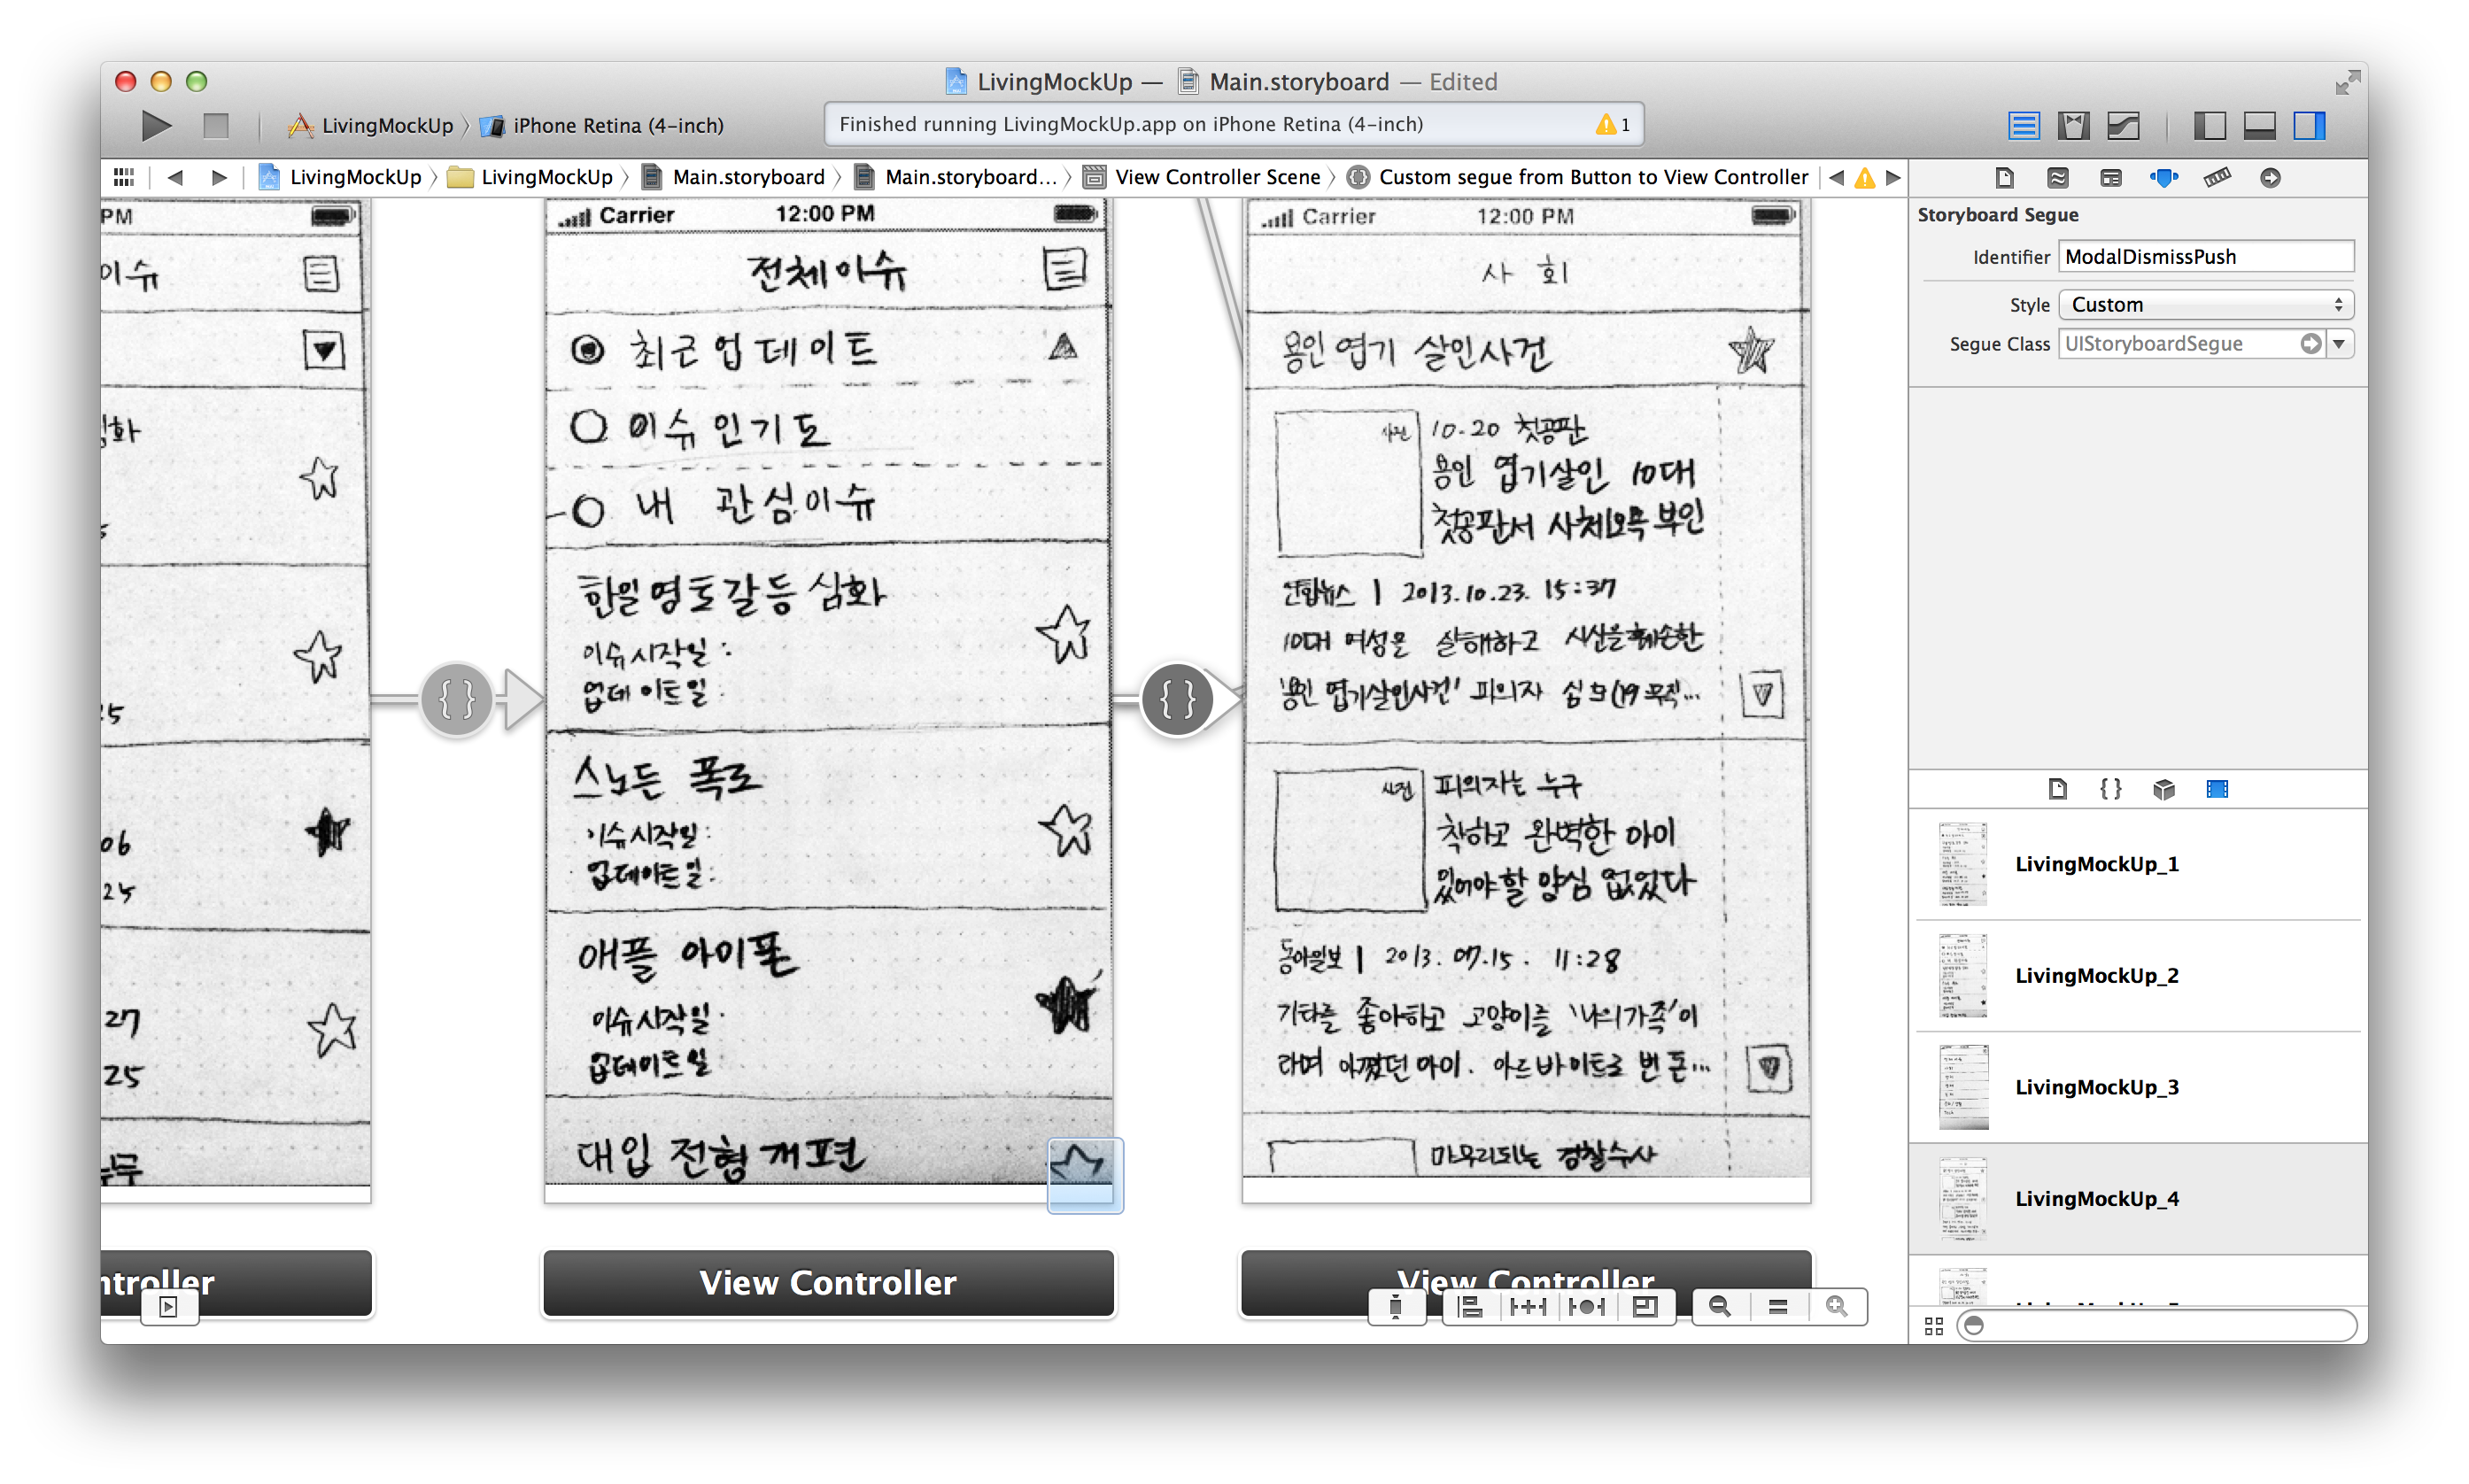 LivingMockUp — Main.storyboard — Edited
LivingMockUp iPhone Retina (4-inch)
Finished running LivingMockUp.app on iPhone Retina (4-inch) 1
LivingMockUp LivingMockUp Main.storyboard Main.storyboard... View Controller Scene Custom segue from Button to View Controller
PM
이슈
심화
5
25
06
25
27
25
ntroller
Carrier 12:00 PM
전체이슈
최근업데이트
이슈인기도
내 관심이슈
한일영토갈등 심화
이슈시작일:
업데이트일
스노든 폭로
이슈시작일:
업데이트일:
애플 아이폰
이슈시작일
업데이트일
대입 전형 개편
View Controller
Carrier 12:00 PM
사 회
용인엽기 살인사건
사진
10.20 첫공판
용인 엽기살인 10대
첫공판서 사체오욕 부인
연합뉴스 | 2013.10.23. 15:37
10대 여성을 살해하고 시신을 훼손한
'용인 엽기살인사건' 피의자 심모(19 무직...
사진
피의자는 누구
착하고 완벽한 아이
있어야 할 양심 없었다
동아일보 | 2013. 07.15. 11:28
기타를 좋아하고 고양이를 '나의가족'이
라며 아꼈던 아이. 아르바이트로 번 돈...
마무리되는 경찰수사
View Controller
Storyboard Segue
Identifier ModalDismissPush
Style Custom
Segue Class UIStoryboardSegue
LivingMockUp_1
LivingMockUp_2
LivingMockUp_3
LivingMockUp_4